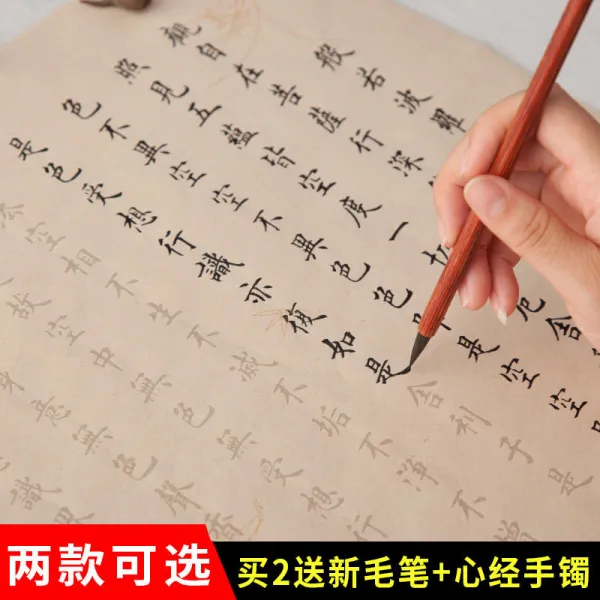 般若波羅
觀自在菩薩行深
照見五蘊皆空度一切
厄舍
色不異空空不異色色即是空空
是色受想行識亦復如是舍利子是
空相不生不滅不垢不淨不
故空中無色無受想行
身意無色聲香
識界
两款可选
买2送新毛笔+心经手镯